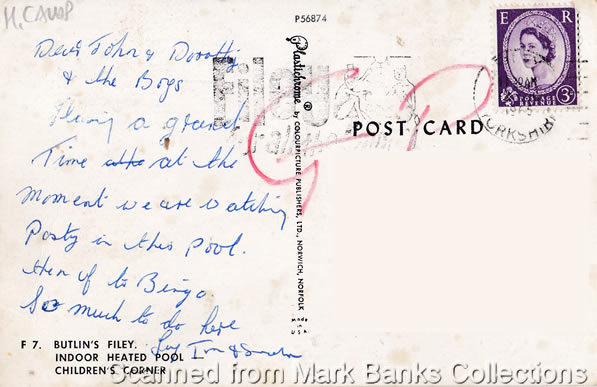 H. CAMP
P56874
Dear John & Dorothy
& the Boys
Having a great
Time at the
moment we are watching
Patsy in this Pool.
then of to Bingo
So much to do here
Luv & Sandra
F 7. BUTLIN'S FILEY.
INDOOR HEATED POOL —
CHILDREN'S CORNER
Plastichrome ® by COLOURPICTURE PUBLISHERS, LTD., NORWICH, NORFOLK
Made in
U.S.A.
Filey
POST CARD
E R
POSTAGE
REVENUE
3D
YORKSHIRE
Scanned from Mark Banks Collections